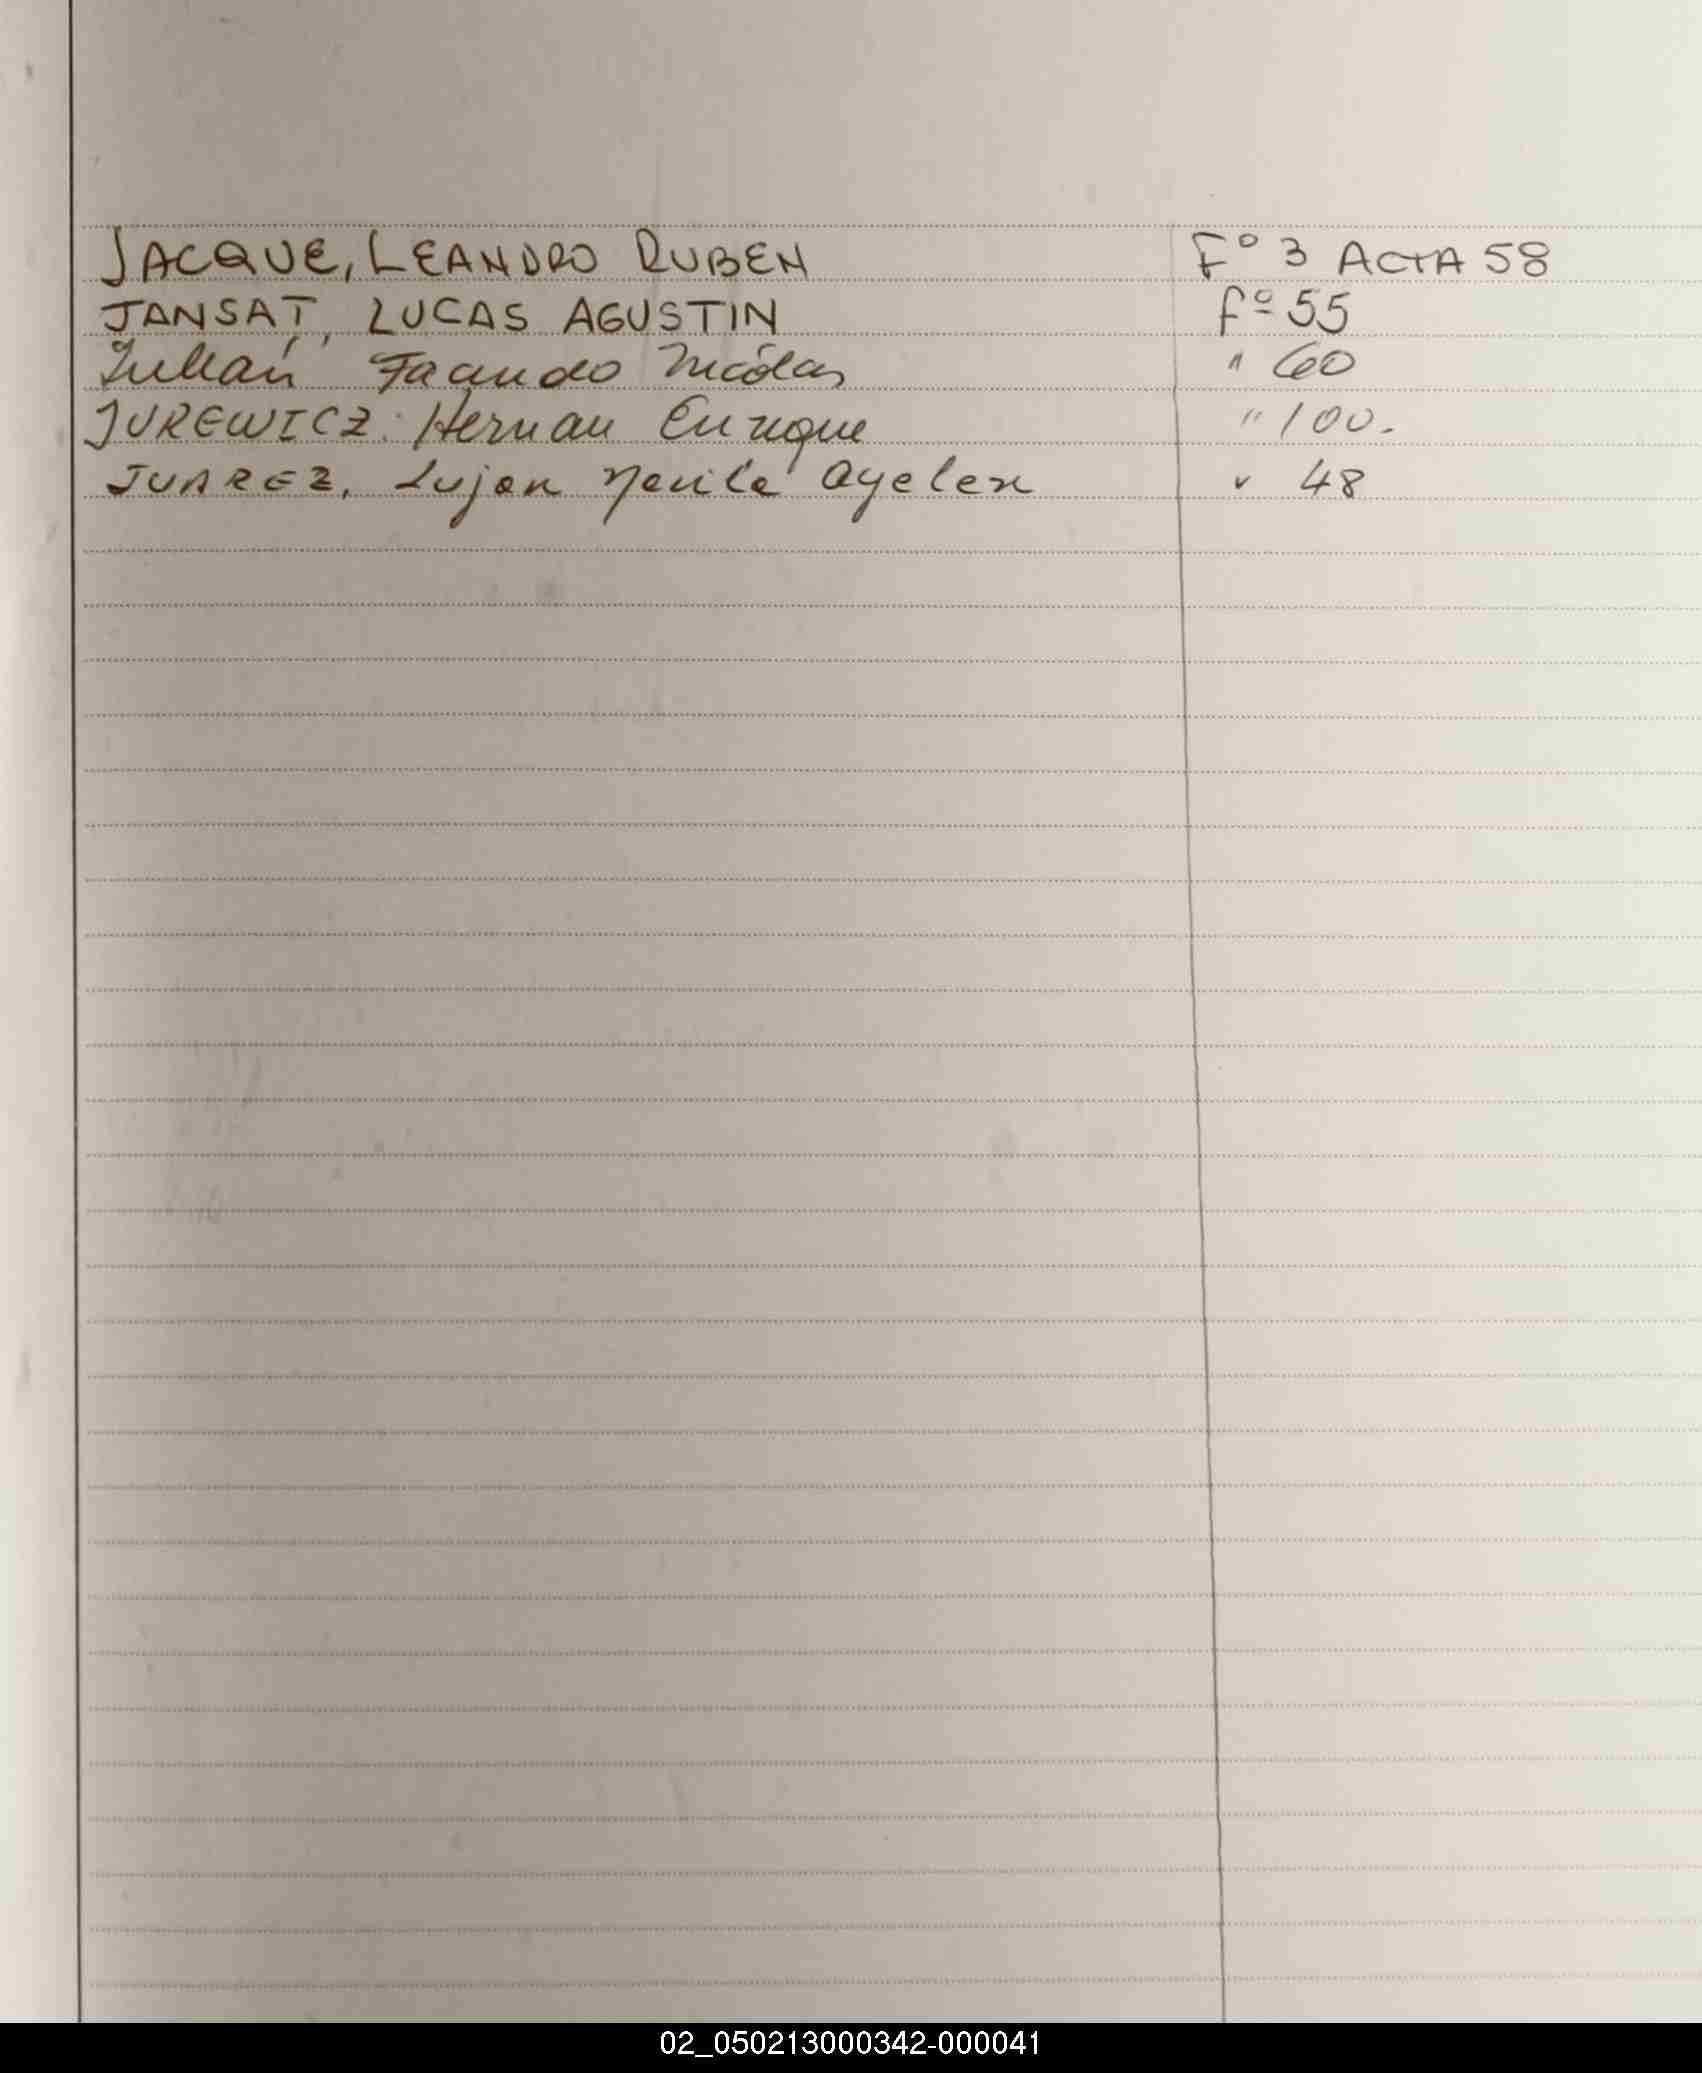 JACQUE, LEANDRO RUBEN F° 3 ACTA 58
JANSAT, LUCAS AGUSTIN fº 55
Julian Facundo Nicolas " 60
JUREWICZ. Hernan Enrique " 100.
JUAREZ, Lujan Ayelen " 48
02_050213000342-000041